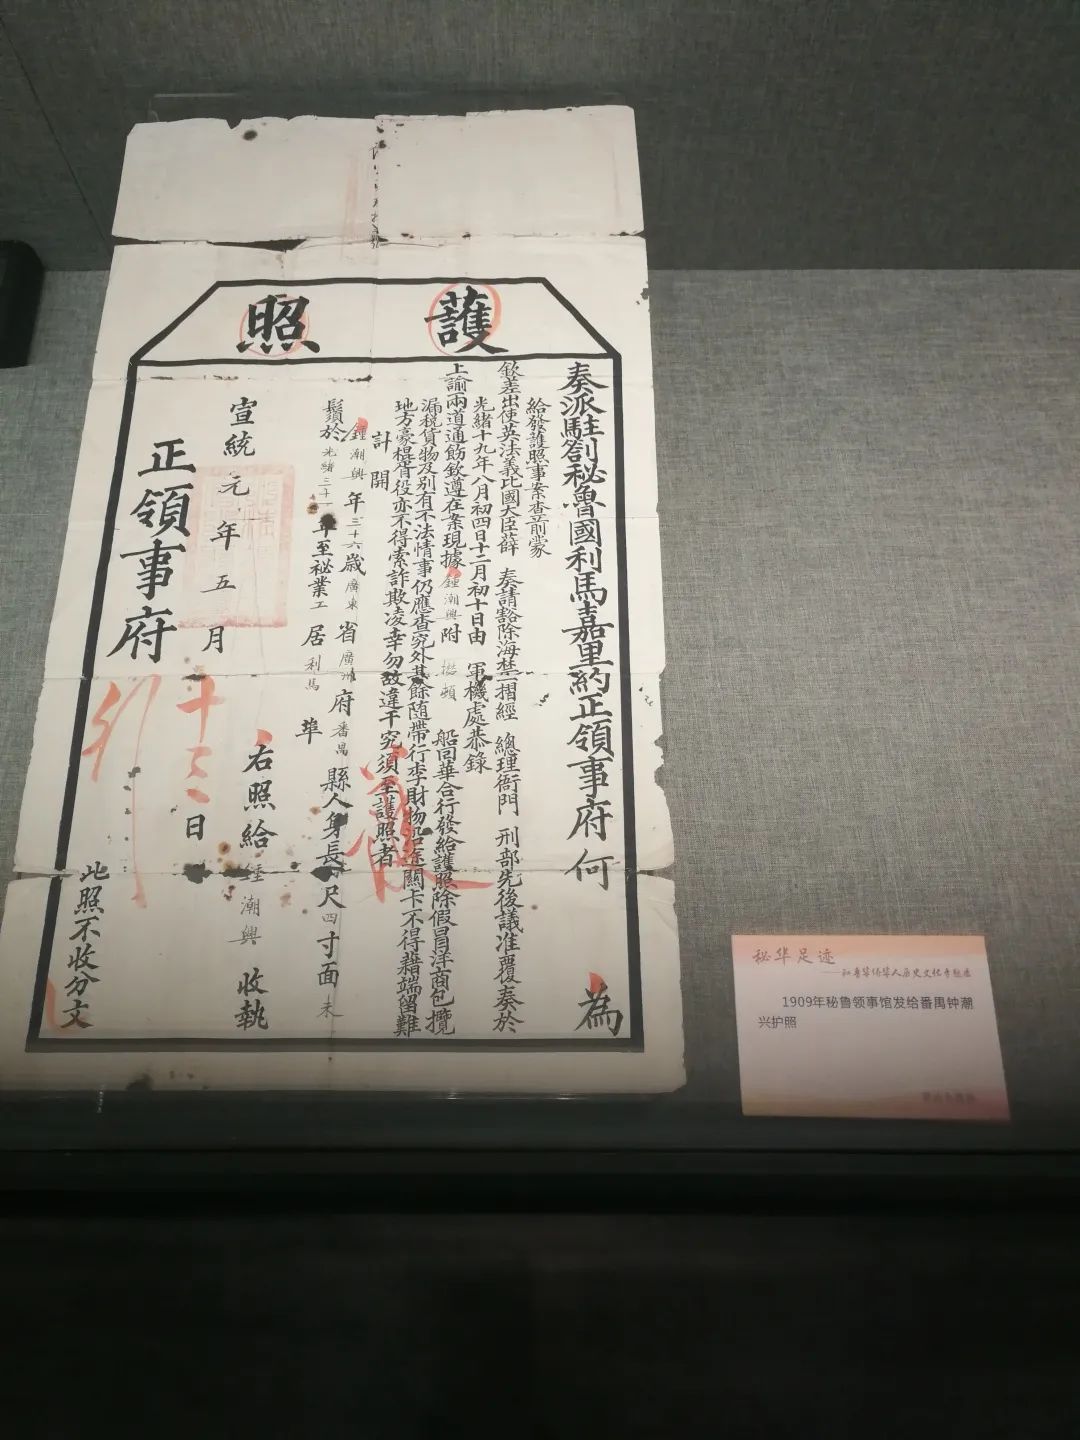 護照
奏派駐劄秘魯國利馬嘉里約正領事府何 為
給發護照事案查前蒙
欽差出使英法義比國大臣薛 奏請豁除海禁一摺經 總理衙門 刑部先後議准覆奏於
光緒十九年八月初四日十二月初十日由 軍機處恭錄
上諭兩道通飭欽遵在案現據鍾潮興附 船回華合行發給護照除假冒洋商包攬
漏稅貨物及別有不法情事仍應查究外其餘隨帶行李財物沿途關卡不得藉端留難
地方豪棍胥役亦不得索詐欺凌幸勿故違干究須至護照者
計開
鍾潮興 年三十六歲廣東省廣州府番禺縣人身長 尺四寸面未
鬚於光緒三十一年至秘業工居利馬埠
右照給鍾潮興收執
宣統元年五月十三日
正領事府 行
此照不收分文
秘华足迹
——秘鲁华侨华人历史文化专题展
1909年秘鲁领事馆发给番禺钟潮
兴护照